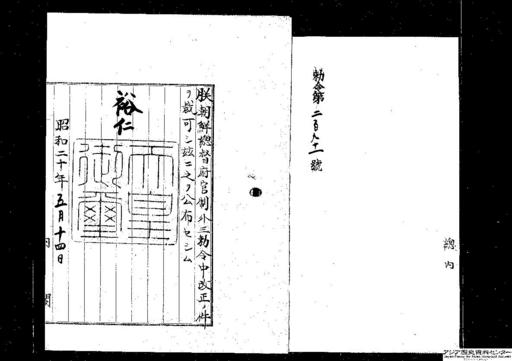 勅令第二百九十一號
總內
朕朝鮮總督府官制外三勅令中改正ノ件
ヲ裁可シ玆ニ之ヲ公布セシム
裕仁
天皇御璽
昭和二十年五月十四日
內閣
アジア歴史資料センター